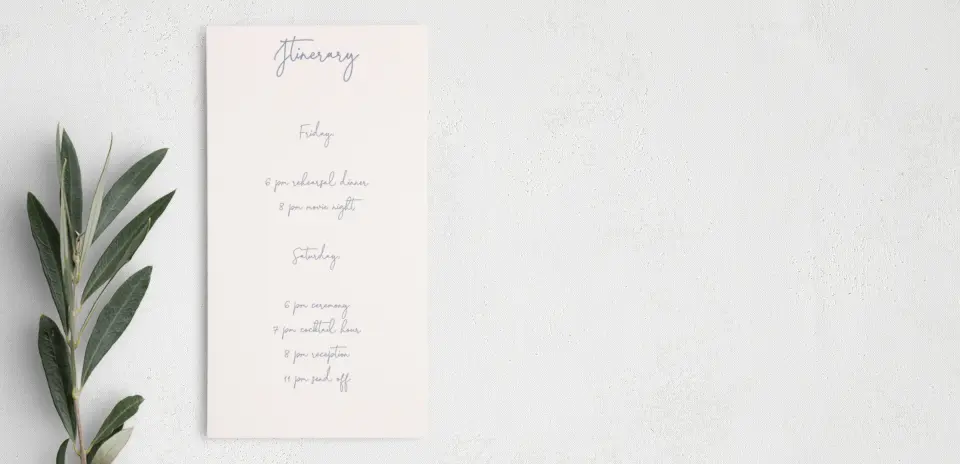 Itinerary
Friday
6 pm rehearsal dinner
8 pm movie night
Saturday
6 pm ceremony
7 pm cocktail hour
8 pm reception
11 pm send off